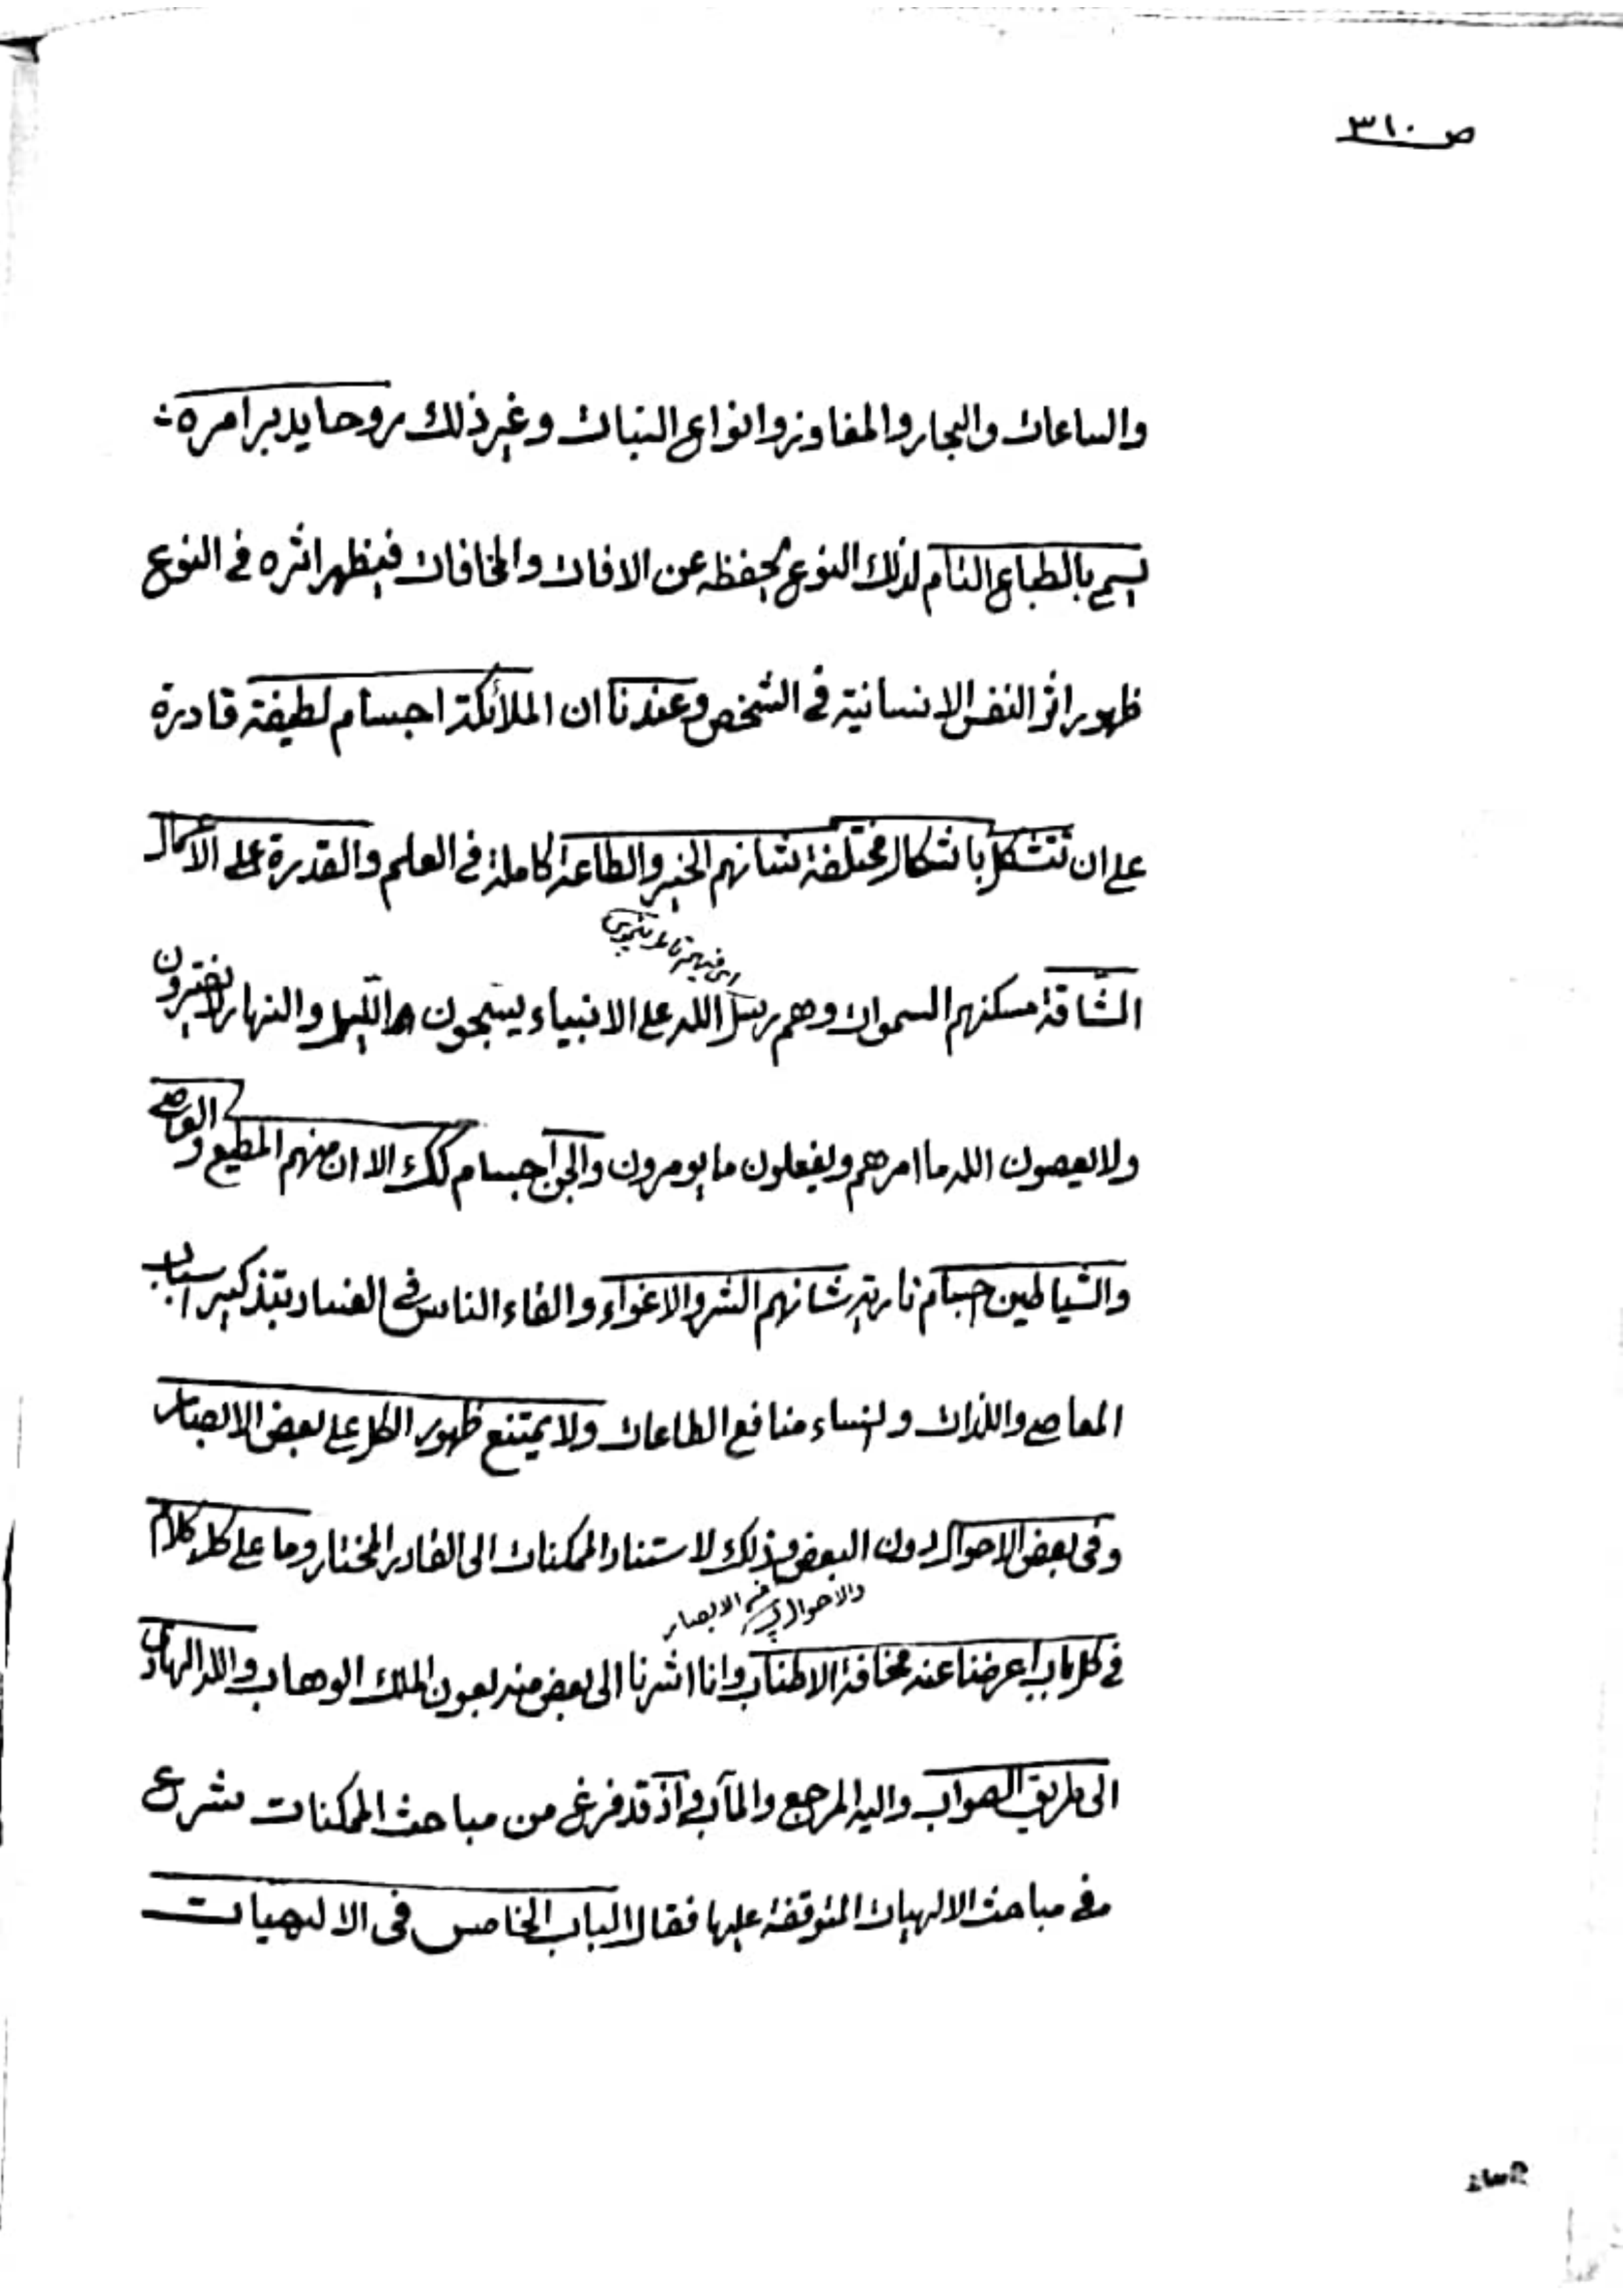 ص ٣١٠
والساعات والبحار والمفاوز وانواع النبات وغير ذلك روحا يدبر امره
يسمى بالطباع التام لذلك النوع يحفظه عن الافات والمخافات فيظهر اثره فى النوع
ظهور اثر النفس الانسانية فى الشخص وعندنا ان الملائكة اجسام لطيفة قادرة
على ان تتشكل باشكال مختلفة شانهم الخير والطاعة كاملة فى العلم والقدرة على الاعمال
الشاقة مسكنهم السموات وهم رسل الله على الانبياء يسبحون الليل والنهار لا يفترون
ولا يعصون الله ما امرهم ويفعلون ما يومرون والجن اجسام كك الا ان منهم المطيع والعاصى
والشياطين اجسام نارية شانهم الشر والاغواء والقاء الناس فى الفساد بتذكير اسباب
المعاصى واللذات وانساء منافع الطاعات ولا يمتنع ظهور الكل على بعض الابصار
وفى بعض الاحوال دون البعض وذلك لاستناد الممكنات الى القادر المختار وما على كل كلام
والاحوال الابصار
فى كل باب اعرضنا عنه مخافة الاطناب وانا اشرنا الى بعض منه بعون الملك الوهاب والله الهادى
الى طريق الصواب واليه المرجع والمآب واذ قد فرغ من مباحث الممكنات شرع
فى مباحث الالهيات المتوقفة عليها فقال الباب الخامس فى الالهيات